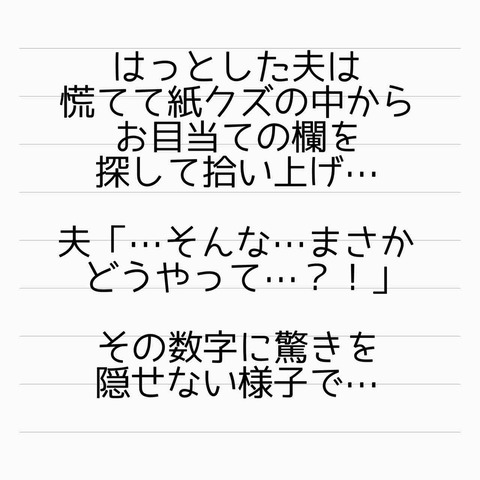 はっとした夫は
慌てて紙クズの中から
お目当ての欄を
探して拾い上げ…
夫「…そんな…まさか
どうやって…？！」
その数字に驚きを
隠せない様子で…